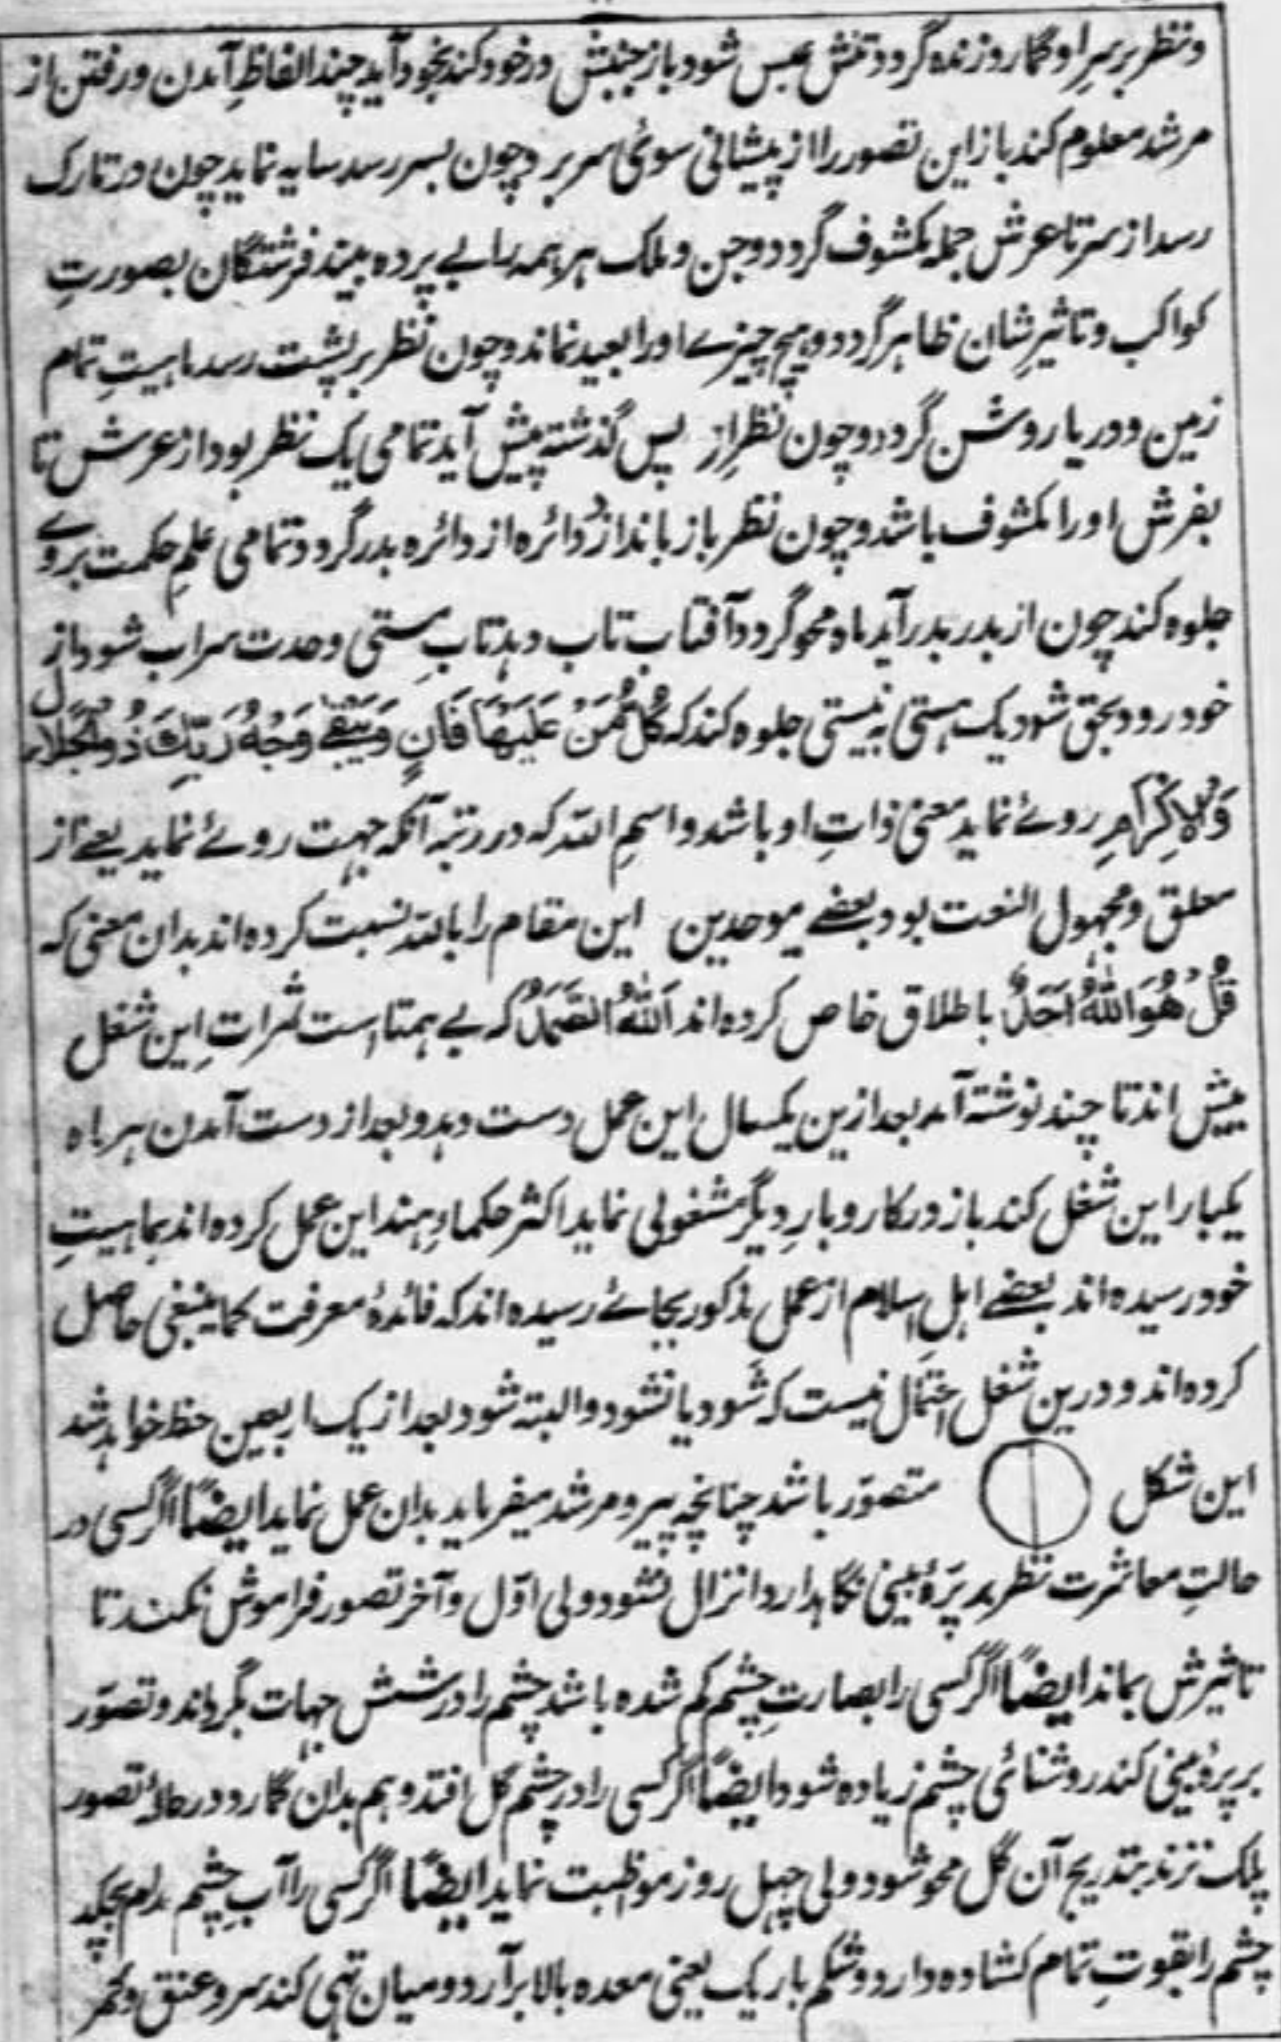 و نظر بر سرِ او گمارد زنده گردد تنش عبس شود باز جنبش در خود کند بخود آید چند الفاظِ آمدن و رفتن از
مرشد معلوم کند باز این تصور را از پیشانی سوئ سر برد چون بسر رسد سایه نماید چون در تارک
رسد از سر تا عرش جمله مکشوف گردد و جن و ملک هر همه را بے پرده بیند فرشتگان بصورتِ
کواکب و تاثیرِ شان ظاهر گردد و هیچ چیزے او را بعید نماند و چون نظر بر پشت رسد ماهیتِ تمام
زمین و دریا روشن گردد و چون نظر از پس گذشته پیش آید تمامی یک نظر بود از عرش تا
بفرش او را مکشوف باشد و چون نظر باز بانداز دائره از دائره بدر گردد تمامی علمِ حکمت بروے
جلوه کند چون از بدر بدر آید ماه محو گردد آفتاب تاب دهد تابِ مستی وحدت سراب شود از
خود رود بحق شود یک هستی به نیستی جلوه کند که كُلُّ مَنْ عَلَيْهَا فَانٍ وَيَبْقٰى وَجْهُ رَبِّكَ ذُو الْجَلَالِ
وَالْاِكْرَامِ روئے نماید معنی ذاتِ او باشد و اسمِ اللّه که در رتبه آنکه جهت روئے نماید یعنے از
معلق و مجهول النعت بود بعضے موحدین این مقام را باللّه نسبت کرده اند بدان معنی که
قُلْ هُوَ اللّٰهُ اَحَدٌ باطلاق خاص کرده اند اَللّٰهُ الصَّمَدُ که بے همتا است ثمراتِ این شغل
بیش اند تا چند نوشته آمد بعد ازین یکسال این عمل دست دهد و بعد از دست آمدن هر ماه
یکبار این شغل کند باز در کار و بارِ دیگر مشغولی نماید اکثر حکماءِ هند این عمل کرده اند بماهیتِ
خود رسیده اند بعضے اهلِ اسلام از عمل مذکور بجائے رسیده اند که فائدهٔ معرفت کما ینبغی حاصل
کرده اند و درین شغل احتمال نیست که شود یا نشود و البته شود بعد از یک اربعین حظ خواهد شد
این شکل متصوّر باشد چنانچه پیر و مرشد میفرماید بدان عمل نماید ایضًا اگر کسی در
حالتِ معاشرت نظر بر پرهٔ بینی نگاهدارد انزال نشود ولی اوّل و آخر تصور فراموش نکند تا
تاثیرش بماند ایضًا اگر کسی را بصارتِ چشم کم شده باشد چشم را در شش جهات بگرداند و تصوّر
بر پرهٔ بینی کند روشنائی چشم زیاده شود ایضًا اگر کسی را در چشم گل افتد و هم بدان گمارد و در حالت تصور
پلک نزند بتدریج آن گل محو شود ولی چهل روز مواظبت نماید ایضًا اگر کسی را آبِ چشم مدام بچکد
چشم را بقوتِ تمام کشاده دارد و شکم باریک یعنی معده بالا برآرد و میان تهی کند سر و عنق و کمر